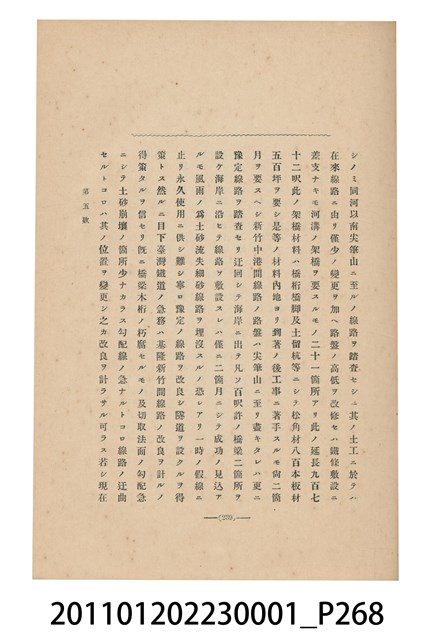 シノミ同河以南尖筆山ニ至ルノ線路ヲ踏査セシニ其ノ土工ニ於テハ
在來線路ニ由リ僅少ノ變更ヲ加ヘ路盤ノ高低ヲ改修セハ鐵條敷設ニ
差支ナキモ河溝ノ架橋ヲ要スルモノ二十一箇所アリ此ノ延長九百七
十二呎此ノ架橋材料ハ橋桁橋脚及土留杭等ニシテ松角材八百本板材
五百坪ヲ要シ是等ノ材料內地ヨリ到著ノ後工事ニ著手スルモ尙二箇
月ヲ要スヘシ新竹中港間線路ノ路盤ハ尖筆山ニ至リ盡キタレハ更ニ
豫定線路ヲ踏査セリ迂回シテ海岸ニ出テ凡ソ百呎許ノ橋梁二箇所ヲ
設ケ海岸ニ沿ヒテ線路ヲ敷設スレハ僅ニ二箇月ニシテ成功ノ見込ア
ルモ風雨ノ爲土砂流失細砂線路ヲ埋沒スルノ恐レアリ一時ノ假線ニ
止リ永久使用ニ供シ難シ寧ロ豫定ノ線路ヲ改良シ隧道ヲ設クルヲ得
策トス然ルニ目下臺灣鐵道ノ急務ハ基隆新竹間線路ノ改良ヲ計ルノ
得策タルヲ信セリ旣ニ橋梁木桁ノ朽腐セルモノ及切取法面ノ勾配急
ニシテ土砂崩壞ノ箇所少ナカラス勾配線ノ急ナルトコロ線路ノ迂曲
セルトコロハ其ノ位置ヲ變更シ之カ改良ヲ計ラサル可ラス若シ現在
第五款
(239)
201101202230001_P268